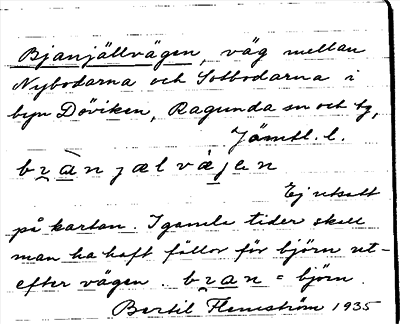 Bjanjällvägen, väg mellan
Nybodarna och Lobbodarna i
byn Döviken, Ragunda sn och tg,
Jämtl. l.
Ej utsatt
på kartan. I gamla tider skall
man ha haft fällor för björn ut-
efter vägen. = björn.
Bertil Flemström 1935